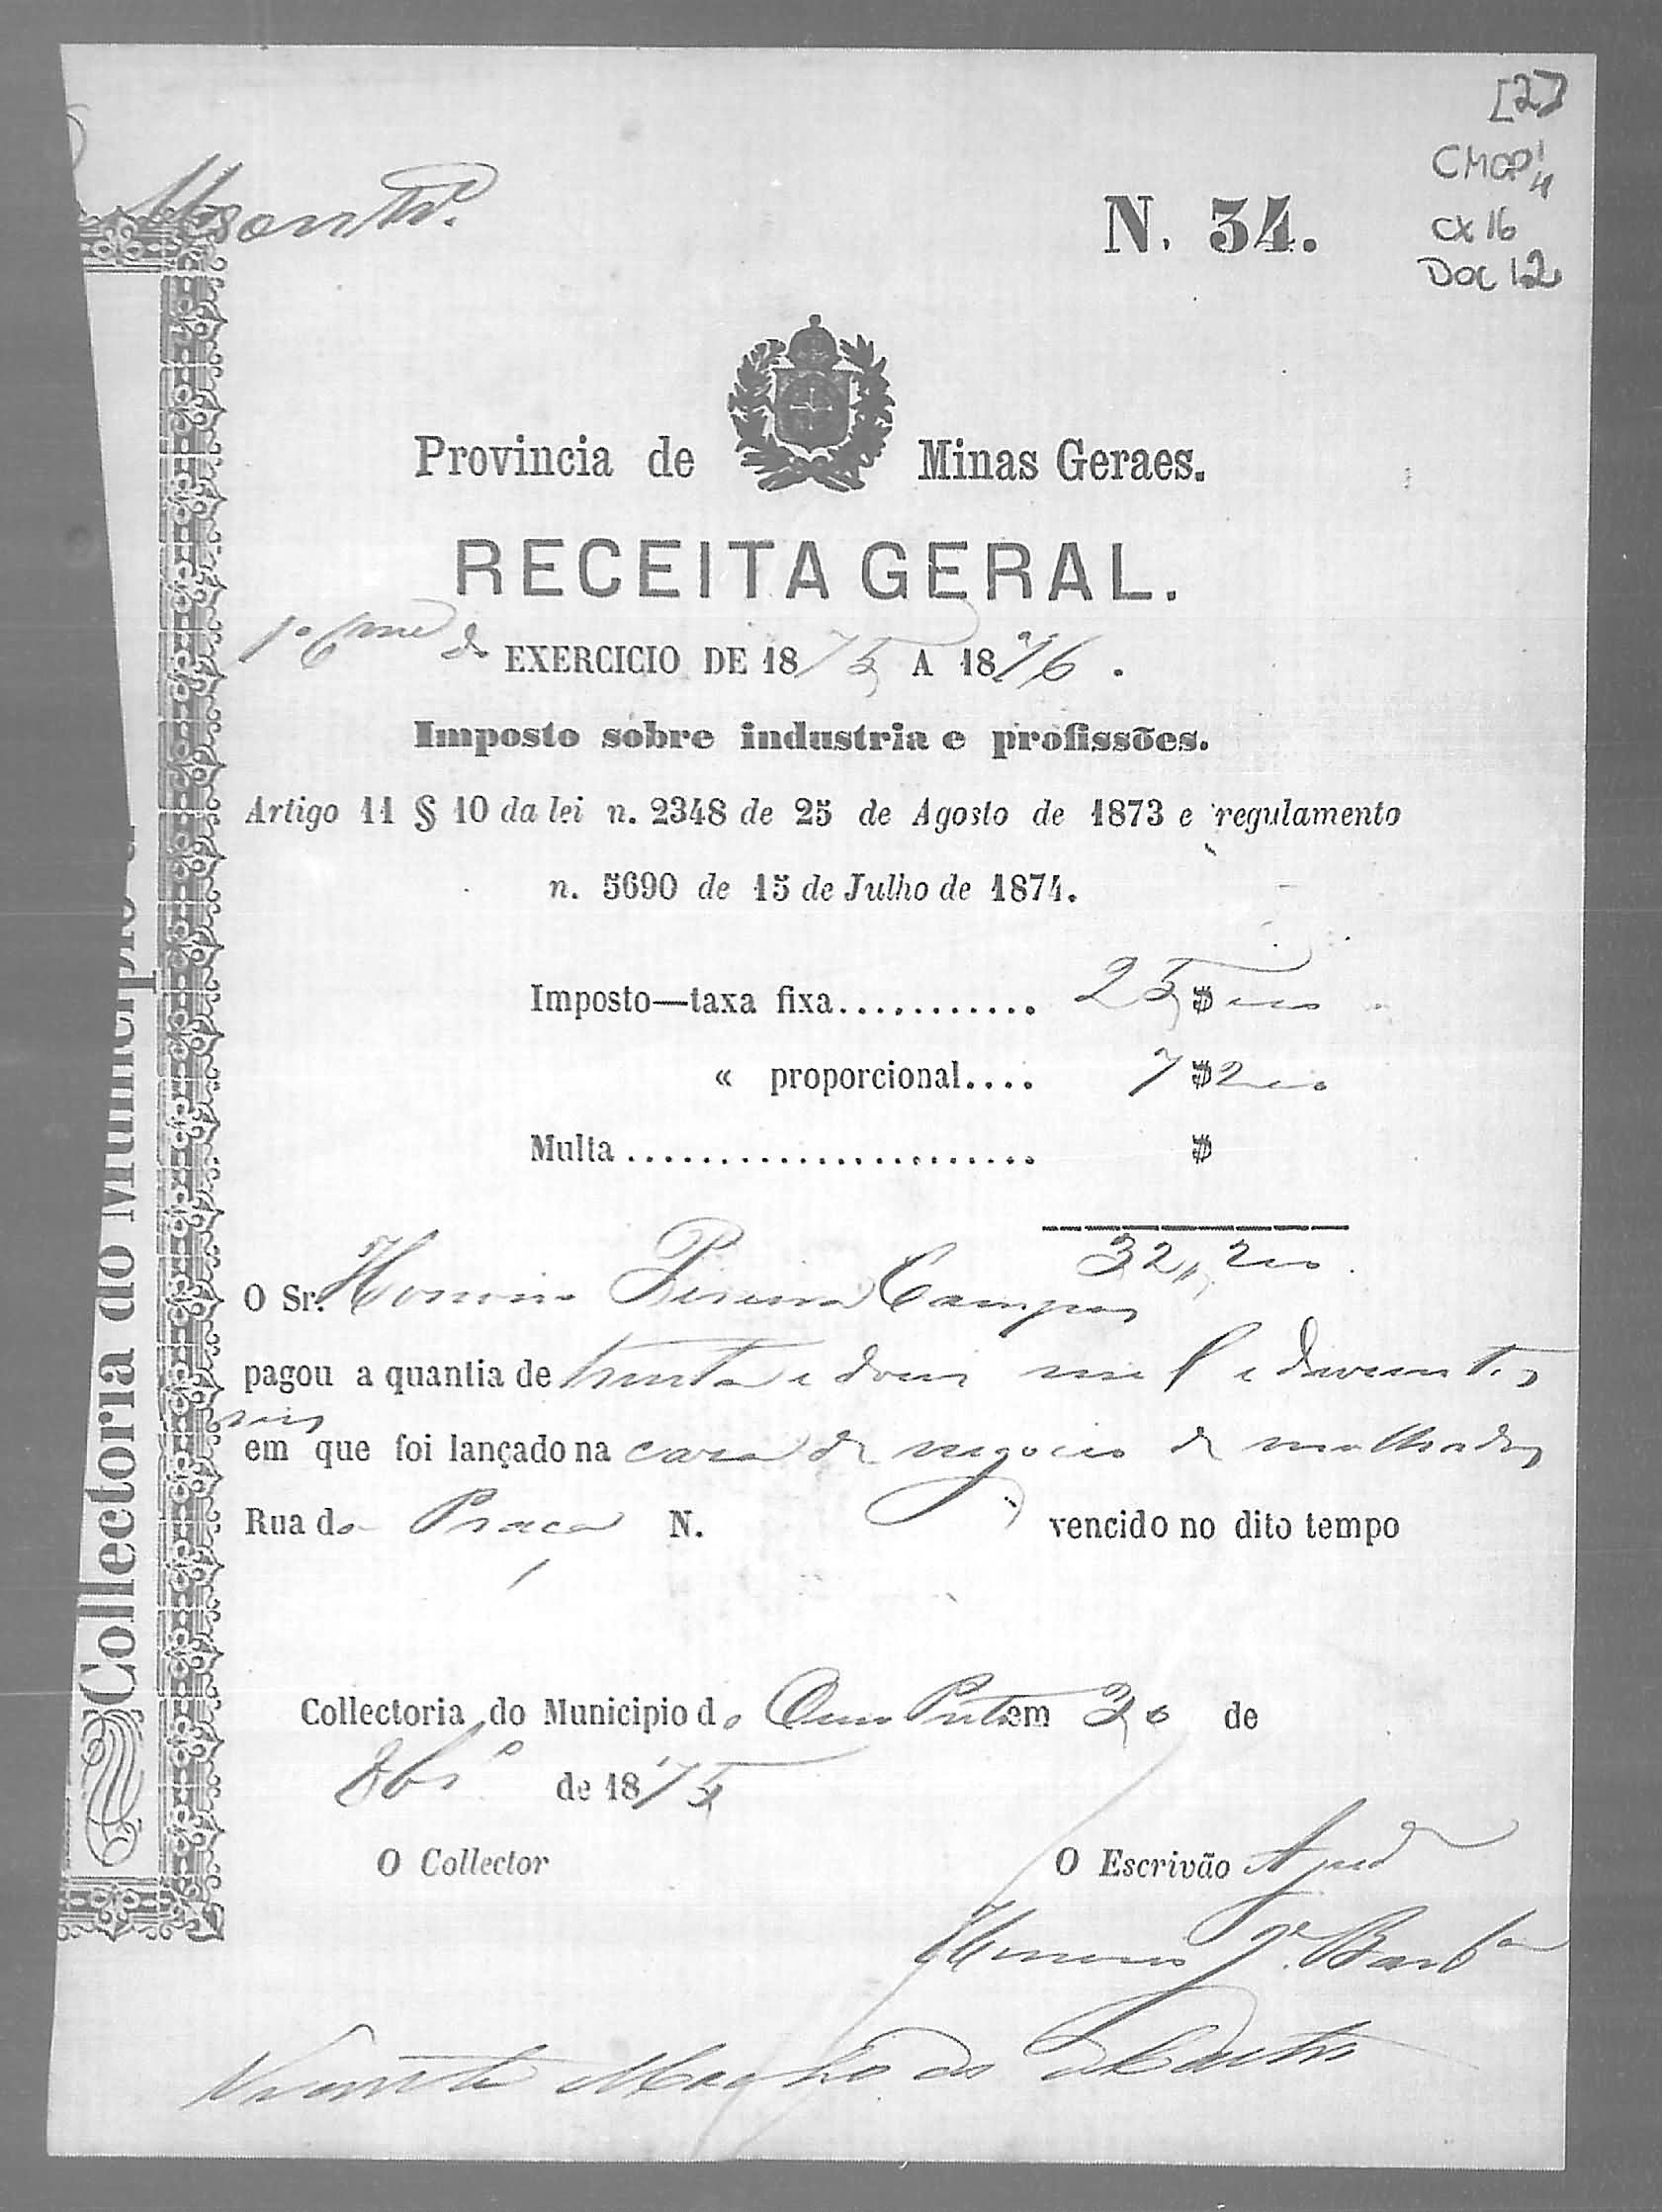 [2]
CMOP
CX 16
DOC 12
N. 34.
Provincia de Minas Geraes.
RECEITA GERAL.
1º do EXERCICIO DE 1875 A 1876.
Imposto sobre industria e profissões.
Artigo 11 § 10 da lei n. 2348 de 25 de Agosto de 1873 e regulamento
n. 5690 de 15 de Julho de 1874.
Imposto—taxa fixa........... 25$000
« proporcional.... 7$200
Multa ...................... $
32,,200
O Sr. Pereira Campos
pagou a quantia de trinta e dous mil e duzentos
reis
em que foi lançado na casa de negocio de molhados
Rua da Praça N. vencido no dito tempo
Collectoria do Municipio do Ouro Preto em 30 de
8brº de 1875
O Collector O Escrivão Ajud
Vicente de Castro
Collectoria do Municipio